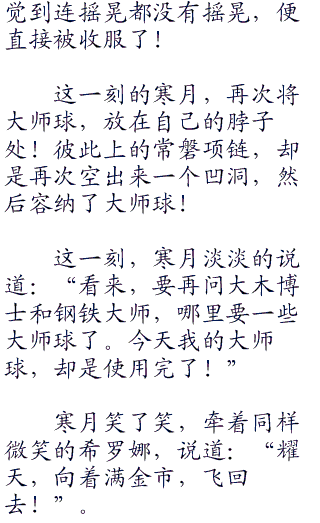 觉到连摇晃都没有摇晃，便
直接被收服了！
这一刻的寒月，再次将
大师球，放在自己的脖子
处！彼此上的常磐项链，却
是再次空出来一个凹洞，然
后容纳了大师球！
这一刻，寒月淡淡的说
道：“看来，要再问大木博
士和钢铁大师，哪里要一些
大师球了。今天我的大师
球，却是使用完了！”
寒月笑了笑，牵着同样
微笑的希罗娜，说道：“耀
天，向着满金市，飞回
去！”。